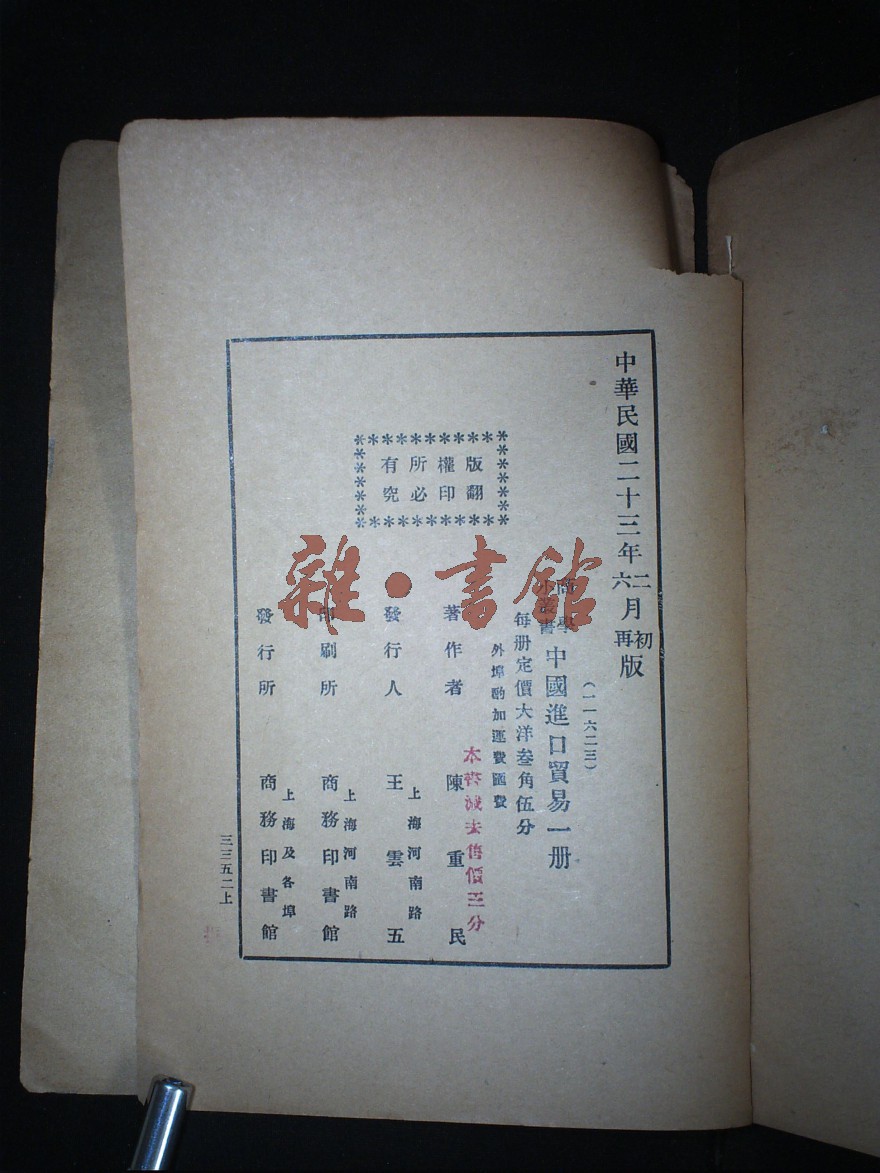 中華民國二十三年二月初版
六 再
(一一六二三)
商學小叢書 中國進口貿易一册
每册定價大洋叁角伍分
外埠酌加運費匯費
本書減去售價三分
著作者 陳重民
發行人 王雲五
上海河南路
印刷所 商務印書館
上海河南路
發行所 商務印書館
上海及各埠
版權所有
翻印必究
三三五二上
雜·書館